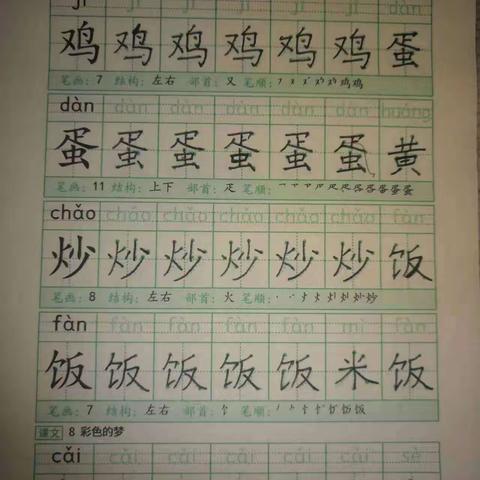 jī jī jī jī jī jī dàn
鸡 鸡 鸡 鸡 鸡 鸡 蛋
笔画：7 结构：左右 部首：又 笔顺：
dàn dàn dàn dàn dàn dàn huáng
蛋 蛋 蛋 蛋 蛋 蛋 黄
笔画：11 结构：上下 部首：疋 笔顺：
chǎo chǎo chǎo chǎo chǎo chǎo fàn
炒 炒 炒 炒 炒 炒 饭
笔画：8 结构：左右 部首：火 笔顺：
fàn fàn fàn fàn fàn mǐ fàn
饭 饭 饭 饭 饭 米 饭
笔画：7 结构：左右 部首：饣 笔顺：
课文 8 彩色的梦
cǎi cǎi cǎi cǎi cǎi cǎi sè